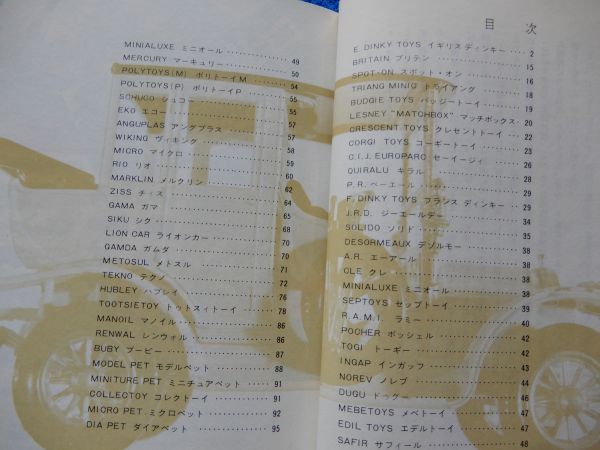 目 次
E. DINKY TOYS イギリス ディンキー 2
BRITAIN ブリテン 15
SPOT-ON スポット・オン 16
TRIANG MINIC トライアング 18
BUDGIE TOYS バッジートーイ 19
LESNEY "MATCHBOX" マッチボックス 20
CRESCENT TOYS クレセントトーイ 22
CORGI TOYS コーギートーイ 23
C.I.J. EUROPARC セーイージィ 26
QUIRALU キラル 28
P.R. ペーエール 29
F. DINKY TOYS フランス ディンキー 29
J.R.D. ジーエールデー 34
SOLIDO ソリド 34
DESORMEAUX デソルモー 38
A.R. エーアール 38
CLE クレ 38
MINIALUXE ミニオール 38
SEPTOYS セップトーイ 40
R.A.M.I. ラミー 40
POCHER ポッシェル 42
TOGI トーギー 42
INGAP インガッフ 43
NOREV ノレブ 44
DUGU ドゥグー 44
MEBETOYS メベトーイ 46
EDIL TOYS エデルトーイ 47
SAFIR サフィール 48
MINIALUXE ミニオール 49
MERCURY マーキュリー 50
POLYTOYS(M) ポリトーイM 54
POLYTOYS(P) ポリトーイP 55
SCHUCO シュコー 55
EKO エコー 57
ANGUPLAS アングプラス 57
WIKING ヴィキング 58
MICRO マイクロ 59
RIO リオ 60
MARKLIN メルクリン 62
ZISS チィス 64
GAMA ガマ 65
SIKU シク 68
LION CAR ライオンカー 70
GAMDA ガムダ 70
METOSUL メトスル 71
TEKNO テクノ 72
HUBLEY ハブレイ 76
TOOTSIETOY トゥットスィトーイ 78
MANOIL マノイル 86
RENWAL レンウォル 86
BUBY ブービー 87
MODEL PET モデルペット 88
MINITURE PET ミニチュアペット 91
COLLECTOY コレクトーイ 91
MICRO PET ミクロペット 92
DIA PET ダイアペット 95